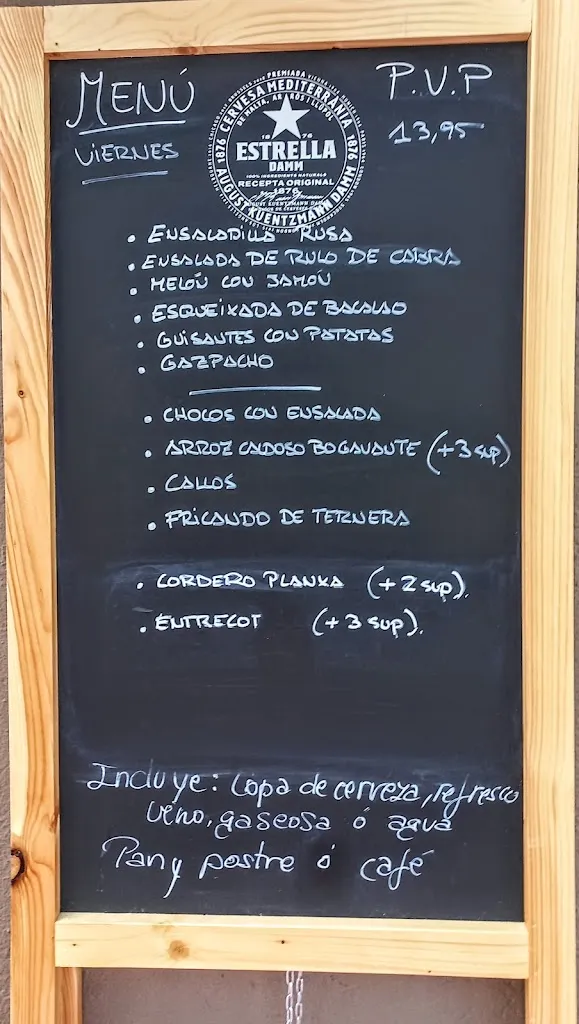 MENÚ
P.V.P
VIERNES
13,95
PREMIADA
CERVESA MEDITERRÀNIA
DE MALTA, ARRÒS I LLÚPOL
1876
1876
1876
ESTRELLA
DAMM
100% INGREDIENTS NATURALS
RECEPTA ORIGINAL
1876
AUGUST KUENTZMANN DAMM
• ENSALADILLA RUSA
• ENSALADA DE RULO DE CABRA
• MELÓN CON JAMÓN
• ESQUEIXADA DE BACALAO
• GUISANTES CON PATATAS
• GAZPACHO
• CHOCOS CON ENSALADA
• ARROZ CALDOSO BOGAVANTE (+3 sup)
• CALLOS
• FRICANDO DE TERNERA
• CORDERO PLANXA (+2 sup).
• ENTRECOT (+3 sup).
Incluye: Copa de cerveza, refresco
veno, gaseosa ó agua
Pan y postre ó café